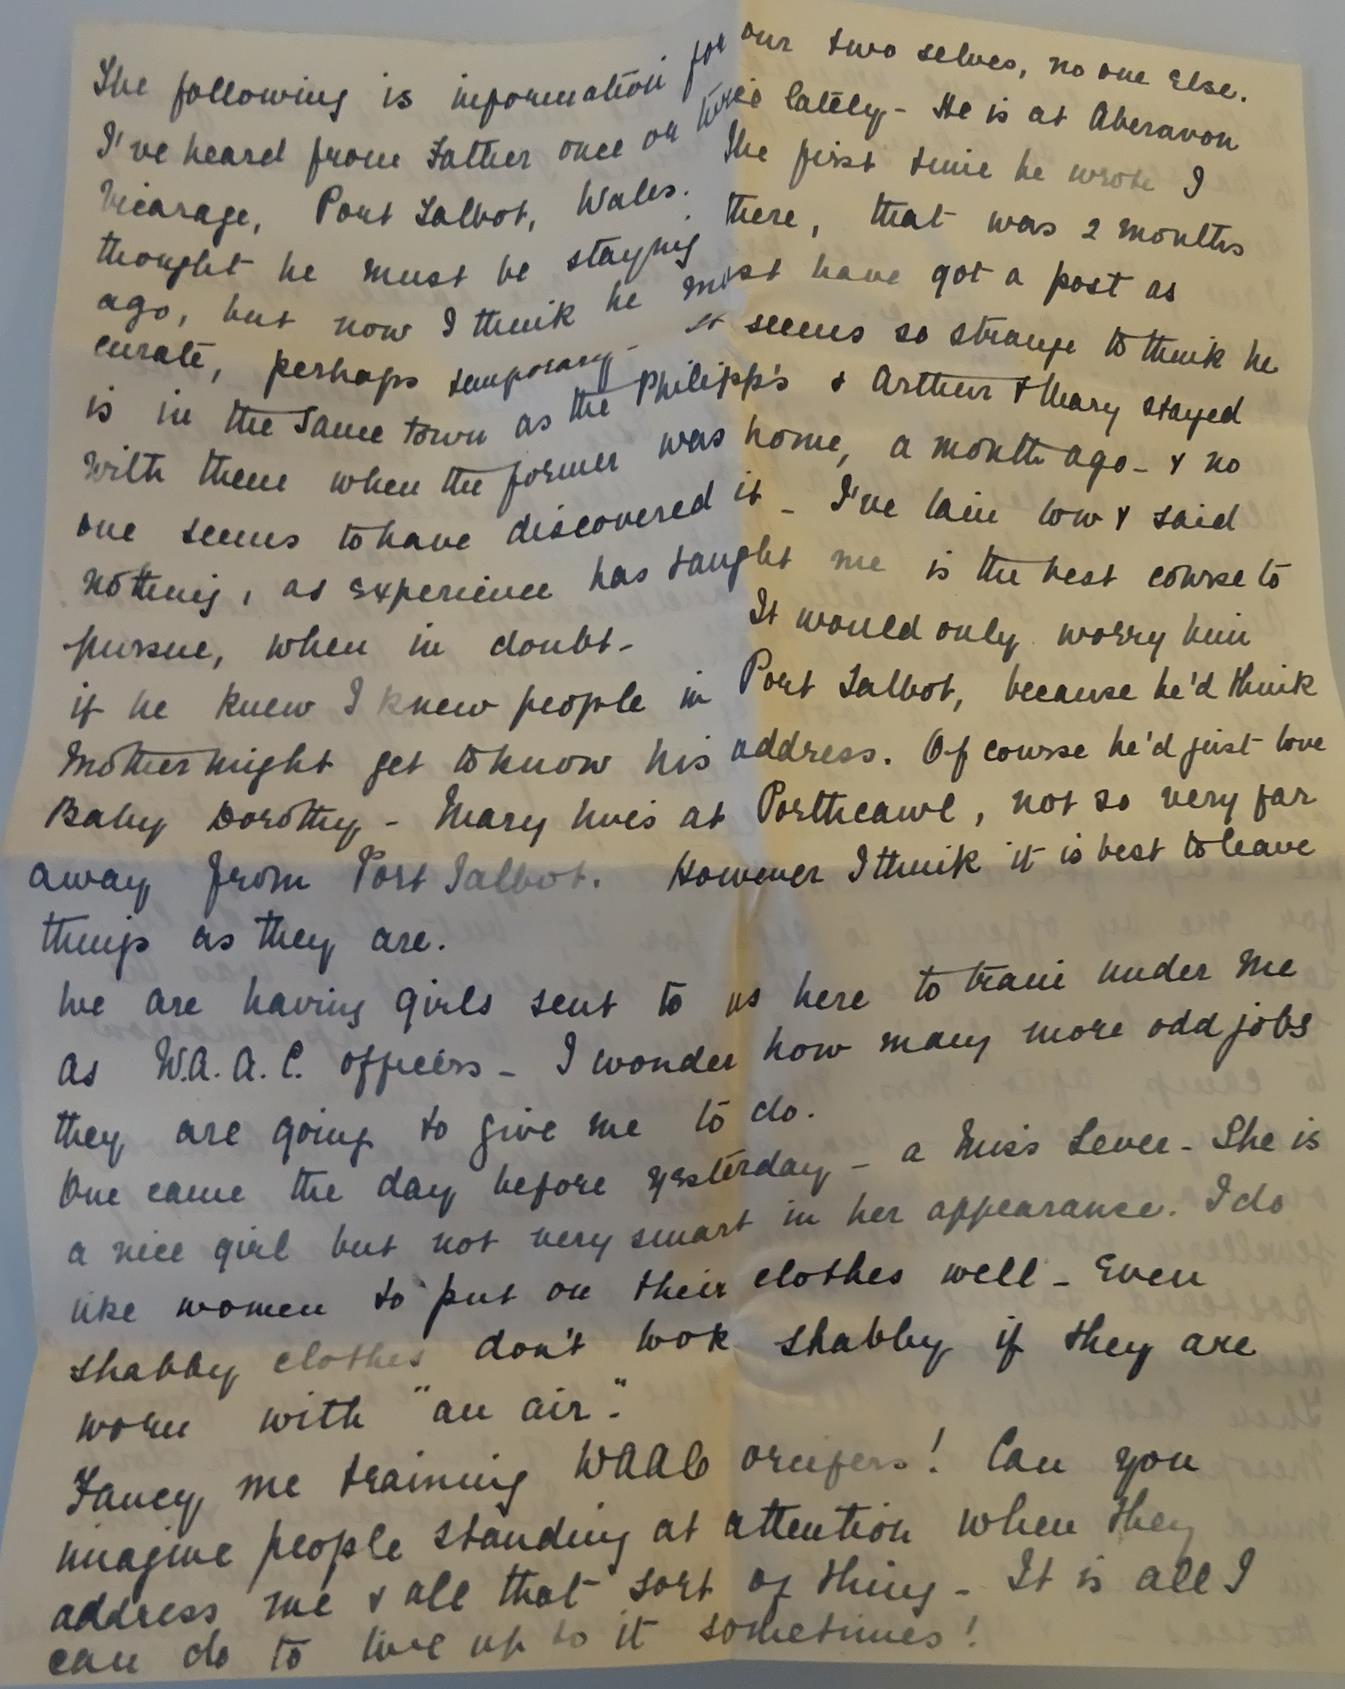 The following is information for our two selves, no one Else.
I've heard from Father once or twice lately - He is at Aberavon
Vicarage, Port Talbot, Wales. The first time he wrote I
thought he must be staying there, that was 2 months
ago, but now I think he must have got a post as
curate, perhaps temporary - It seems so strange to think he
is in the same town as the Philipp's & Arthur & Mary stayed
with them when the former was home, a month ago - & no
one seems to have discovered it - I've lain low & said
nothing, as experience has taught me is the best course to
pursue, when in doubt - It would only worry him
if he knew I knew people in Port Talbot, because he'd think
Mother might get to know his address. Of course he'd just love
Baby Dorothy - Mary lives at Porthcawl, not so very far
away from Port Talbot. However I think it is best to leave
things as they are.
We are having girls sent to us here to train under me
as W.A.A.C. officers - I wonder how many more odd jobs
they are going to give me to do.
One came the day before yesterday - a Miss Lever - She is
a nice girl but not very smart in her appearance. I do
like women to put on their clothes well - Even
shabby clothes don't look shabby if they are
worn with "an air".
Fancy me training WAAC officers! Can you
imagine people standing at attention when they
address me & all that sort of thing - It is all I
can do to live up to it sometimes!